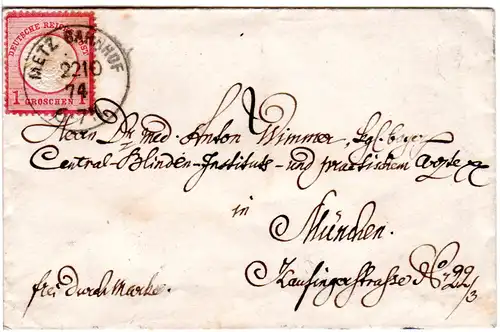 DEUTSCHE REICHS-POST
1 GROSCHEN 1
METZ BAHNHOF
22 10
74
Herrn Dr med. Anton Wimmer, Kgl. bayr.
Central-Blinden-Instituts- und practischem Arzte
in
München.
Kaufingerstrasse No. 22/3
frei durch Marke.